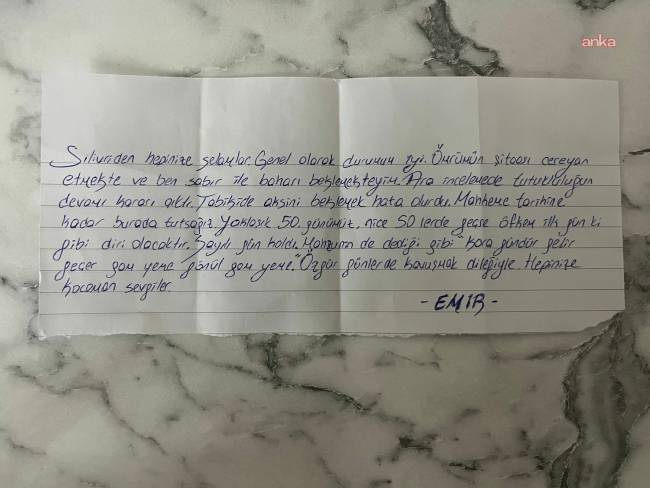 anka
Silivriden hepinize selamlar. Genel olarak durumum iyi. Ömrümün şitası cereyan
etmekte ve ben sabır ile baharı beklemekteyim. Ara incelemede tutukluluğun
devamı kararı çıktı. Tabikide aksini beklemek hata olurdu. Mahkeme tarihine
kadar burada tutsağız. Yaklaşık 50. günümüz, nice 50 lerde geçse öfkem ilk gün ki
gibi diri olacaktır. Sayılı gün kaldı. Mahzuni de dediği gibi "kara gündür gelir
geçer gam yeme gönül gam yeme." Özgür günlerde kavuşmak dileğiyle. Hepinize
kocaman sevgiler.
- EMİR -